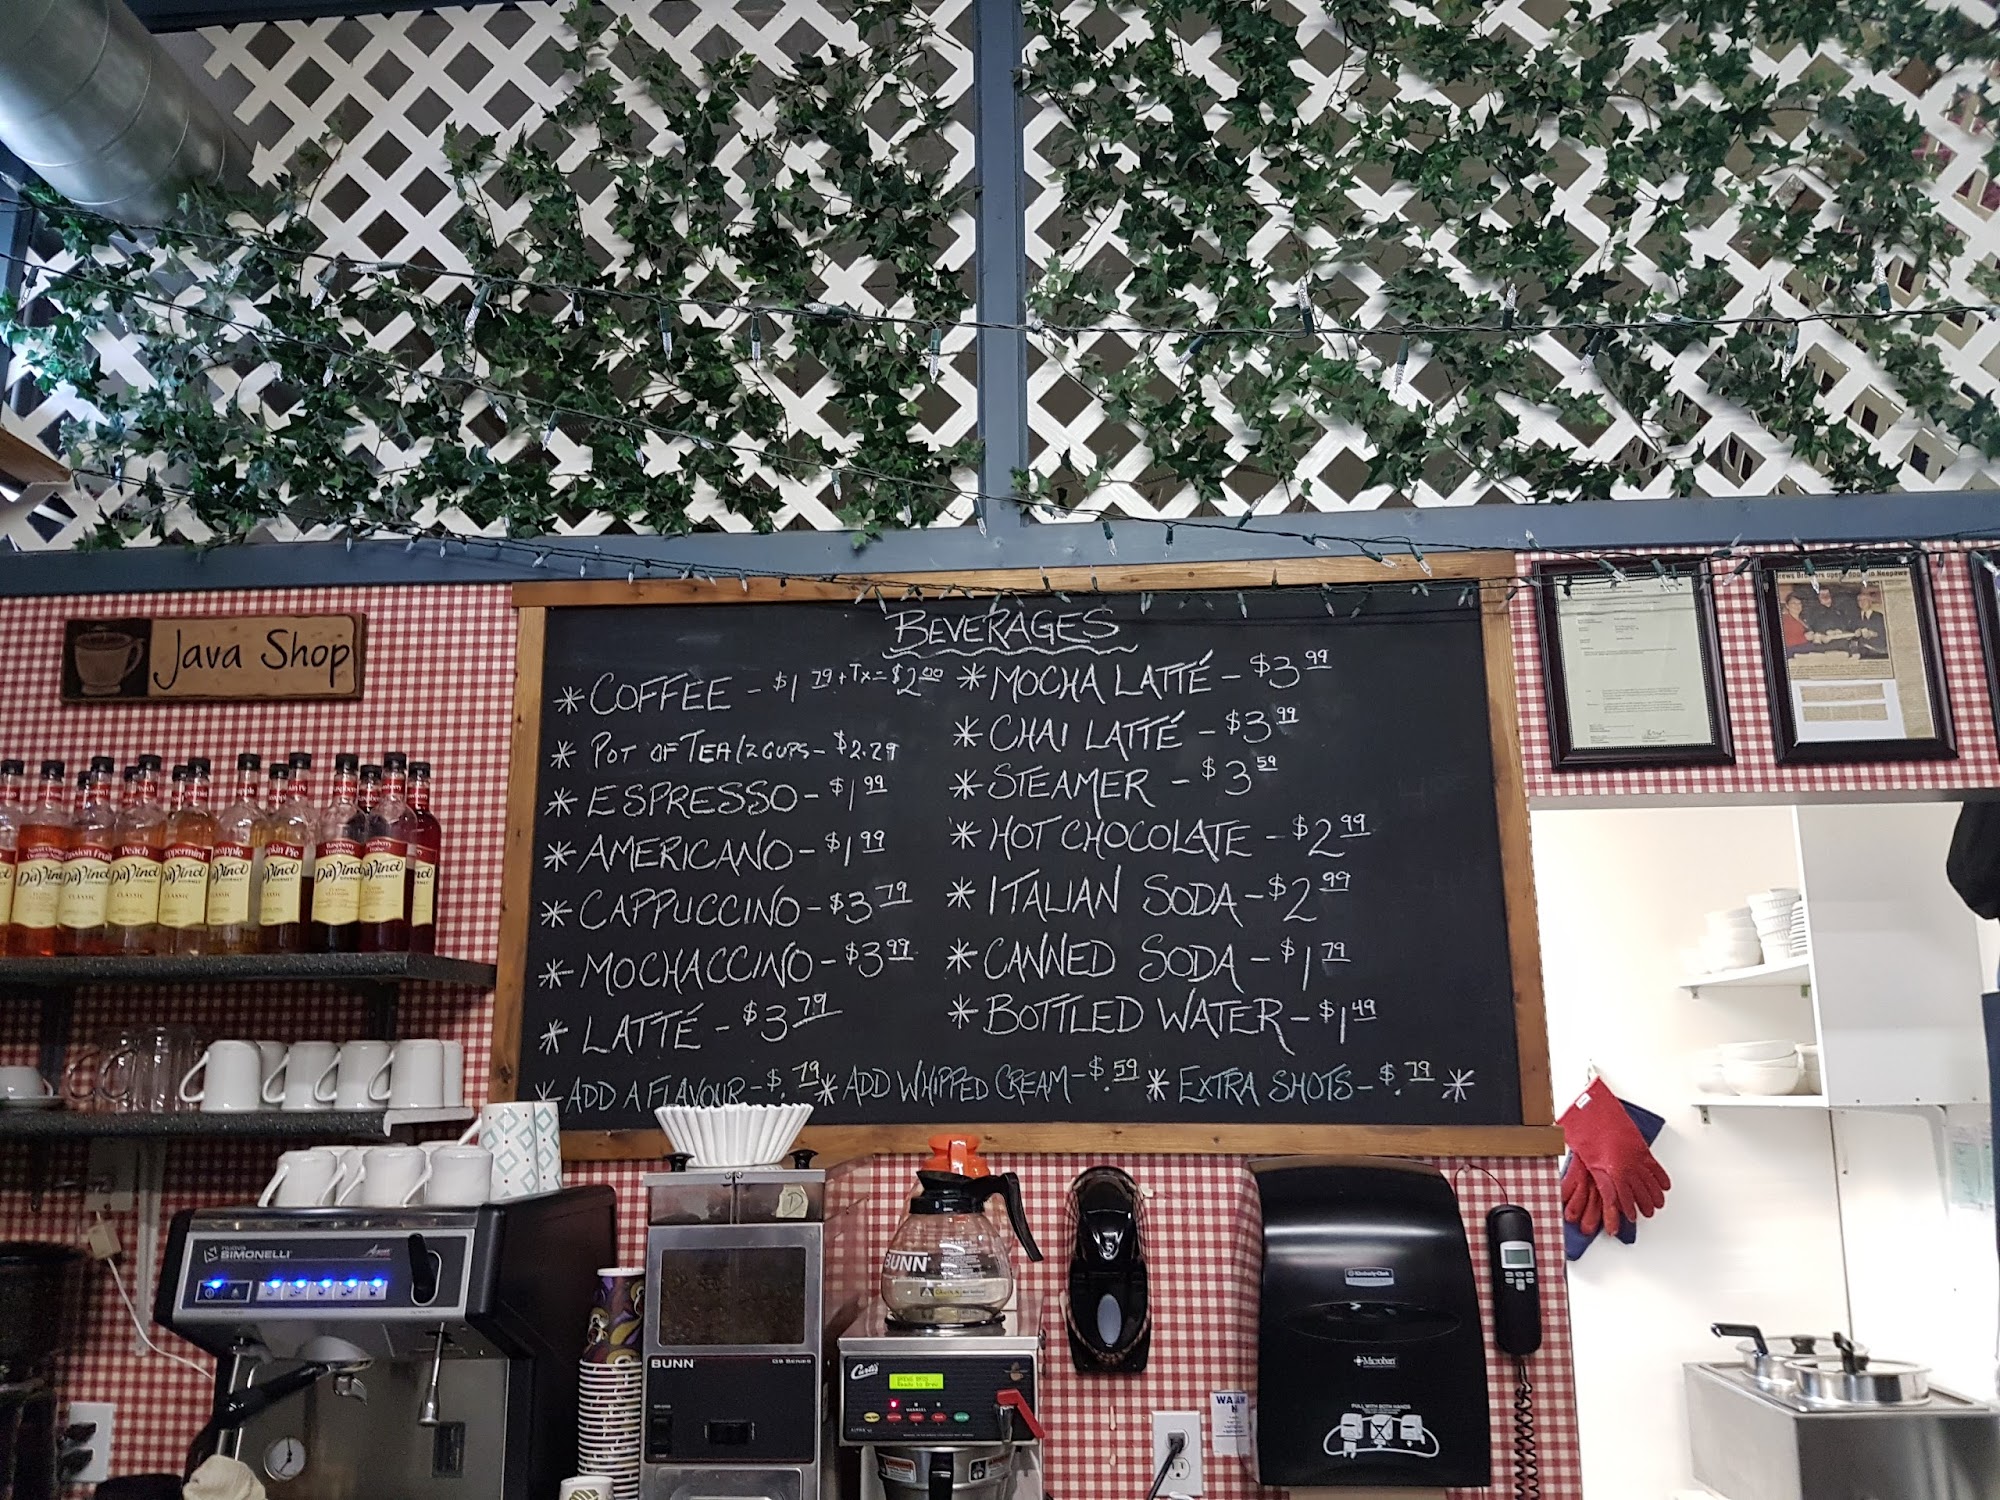 Java Shop
BEVERAGES
* COFFEE - $1.79 + Tx = $2.00
* POT OF TEA / 2 CUPS - $2.29
* ESPRESSO - $1.99
* AMERICANO - $1.99
* CAPPUCCINO - $3.79
* MOCHACCINO - $3.99
* LATTÉ - $3.79
* MOCHA LATTÉ - $3.99
* CHAI LATTÉ - $3.99
* STEAMER - $3.59
* HOT CHOCOLATE - $2.99
* ITALIAN SODA - $2.99
* CANNED SODA - $1.79
* BOTTLED WATER - $1.49
* ADD A FLAVOUR - $.79 * ADD WHIPPED CREAM - $.59 * EXTRA SHOTS - $.79 *
Peach
DaVinci
CLASSIC
DaVinci
Raspberry
DaVinci
nuova
SIMONELLI
BUNN
BUNN
G9 SERIES
Curtis
Ready to Brew
Kimberly-Clark
Microban
PULL WITH BOTH HANDS